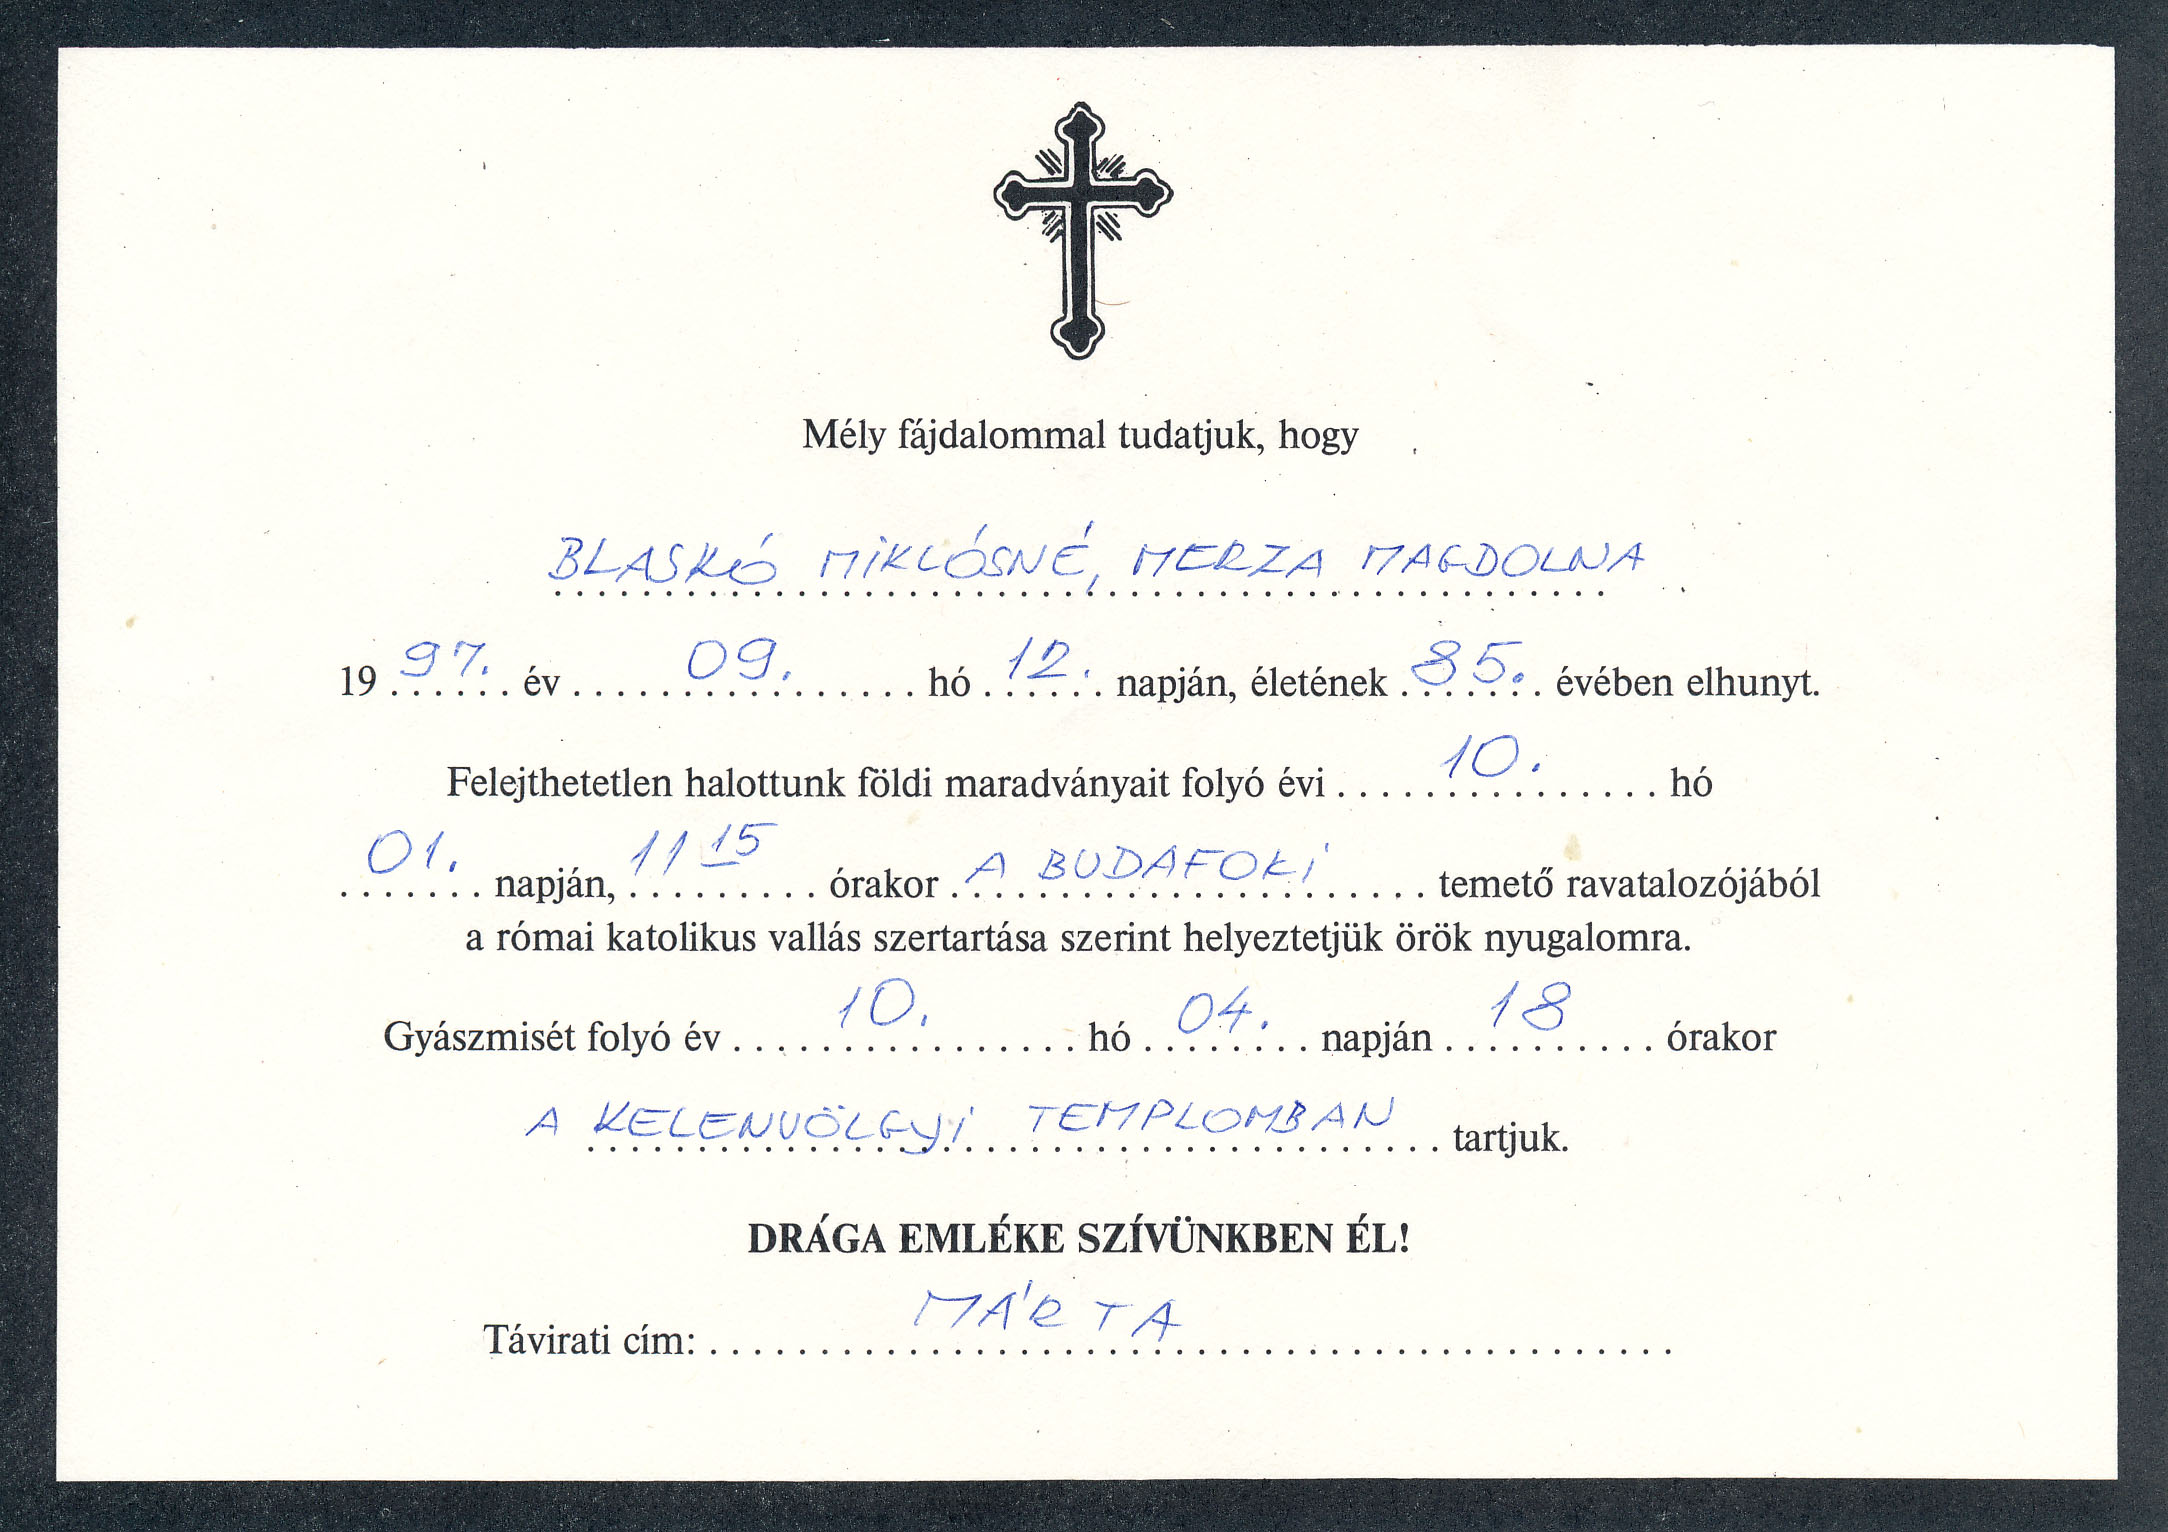 Mély fájdalommal tudatjuk, hogy
BLASKÓ MIKLÓSNÉ, MERZA MAGDOLNA
19 97. év 09. hó 12. napján, életének 85. évében elhunyt.
Felejthetetlen halottunk földi maradványait folyó évi 10. hó
01. napján, 11 15 órakor A BUDAFOKI temető ravatalozójából
a római katolikus vallás szertartása szerint helyeztetjük örök nyugalomra.
Gyászmisét folyó év 10. hó 04. napján 18 órakor
A KELENVÖLGYI TEMPLOMBAN tartjuk.
DRÁGA EMLÉKE SZÍVÜNKBEN ÉL!
Távirati cím: MÁRTA